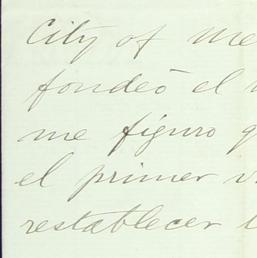 City of Me
fondeó el
me figuro q
el primer v
restablecer